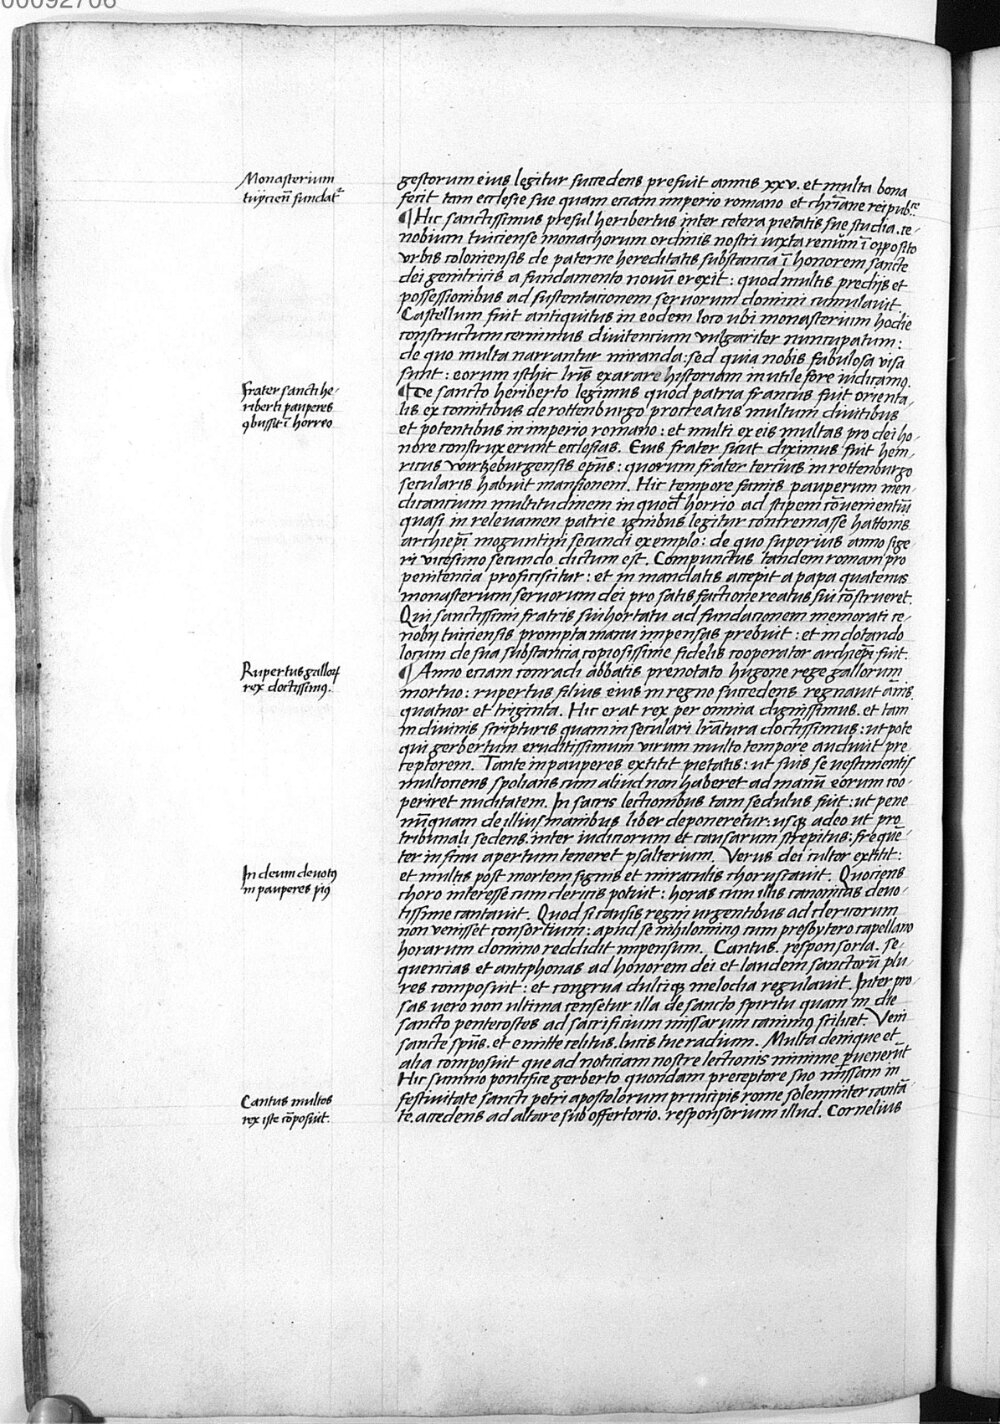 00092706
Monasterium
tuÿcieñ fundat᷑
gestorum eius legitur succedens prefuit annis xxv. et multa bona
fecit tam ecclesie sue quam eciam imperio romano et chr̄iane reipub.ce
¶ Hic sanctissimus presul heribertus inter cetera pietatis sue studia. ce-
nobium tuiciense monachorum ordinis nostri iuxta renum̄ ī opposito
vrbis coloniensis de paterne hereditatis substancia ī honorem sancte
dei genitricis a fundamento nouū erexit : quod multis predijs et
possessionibus ad sustentacionem seruorum domini cumulauit.
Castellum fuit antiquitus in eodem loco vbi monasterium hodie
constructum cernimus diuitencium vulgariter nuncupatum :
de quo multa narrantur miranda : sed quia nobis fabulosa visa
sunt : eorum isthic lr̄is exarare historiam inutile fore iudicamꝰ.
Frater sancti he-
riberti pauperes
ꝯbussit ī horreo
¶ De sancto heriberto legimus quod patria francus fuit orienta-
lis ex comitibus de rottenburgo procreatus multum diuitibus
et potentibus in imperio romano : et multi ex eis multas pro dei ho-
nore construxerunt ecclesias. Eius frater sicut diximus fuit hein-
ricus wirtzeburgensis ep̄us : quorum frater tercius in rottenburgo
secularis habuit mansionem. Hic tempore famis pauperum men-
dicancium multitudinem in quod̄ horrio ad stipem cōueniētiū
quasi in releuamen patrie ignibus legitur concremasse hattonis
archiep̄i moguntini secundi exemplo : de quo superius anno sige-
ri vicesimo secundo dictum est. Compunctus tandem romam pro
penitencia proficiscitur : et in mandatis accepit a papa quatenus
monasterium seruorum dei pro satisfactione reatus sui cōstrueret.
Qui sanctissimi fratris sui hortatu ad fundacionem memorati ce-
nobij tuiciensis prompta manu impensas prebuit : et in dotando
locum de sua substancia copiosissime fidelis cooperator archiep̄i fuit.
Rupertus galloꝝ
rex doctissimꝰ.
¶ Anno eciam conradi abbatis prenotato hugone rege gallorum
mortuo : rupertus filius eius in regno succedens regnauit annis
quatuor et triginta. Hic erat rex per omnia dignissimus. et tam
in diuinis scripturis quam in seculari lr̄atura doctissimus : ut pote
qui gerbertum eruditissimum virum multo tempore audiuit pre-
ceptorem. Tante in pauperes extitit pietatis : ut suis se vestimentis
multociens spolians cum aliud non haberet ad manū eorum coo-
periret nuditatem. In sacris lectionibus tam sedulus fuit : ut pene
nūnquam de illius manibus liber deponeretur. usqꝫ adeo ut pro
tribunali sedens. inter iudiciorum et causarum strepitus : frequē-
ter in sinu apertum teneret psalterium. Verus dei cultor extitit :
In deum deuotꝰ
in pauperes piꝰ
et multis post mortem signis et miraculis choruscauit. Quociens
choro interesse cum clericis potuit : horas cum illis canonicas deuo-
tissime cantauit. Quod si causis regni urgentibus ad clericorum
non venisset consortium : apud se nihilominꝰ cum presbytero capellano
horarum domino reddidit impensum. Cantus. responsoria. se-
quencias et antiphonas ad honorem dei et laudem sanctorū plu-
res composuit : et congrua dulciqꝫ melodia regulauit. Inter pro-
sas vero non ultima censetur illa de sancto spiritu quam in die
sancto pentecostes ad sacrificium missarum canimꝰ scilicet. Veni
sancte sp̄us. et emitte celitus. lucis tue radium. Multa denique et
alia composuit que ad noticiam nostre lectionis minime ꝑuenerūt
Cantus multos
rex iste cōposuit.
Hic summo pontifice gerberto quondam preceptore suo missam in
festiuitate sancti petri apostolorum principis rome solemniter cantā-
te. accedens ad altare sub offertorio. responsorium illud. Cornelius